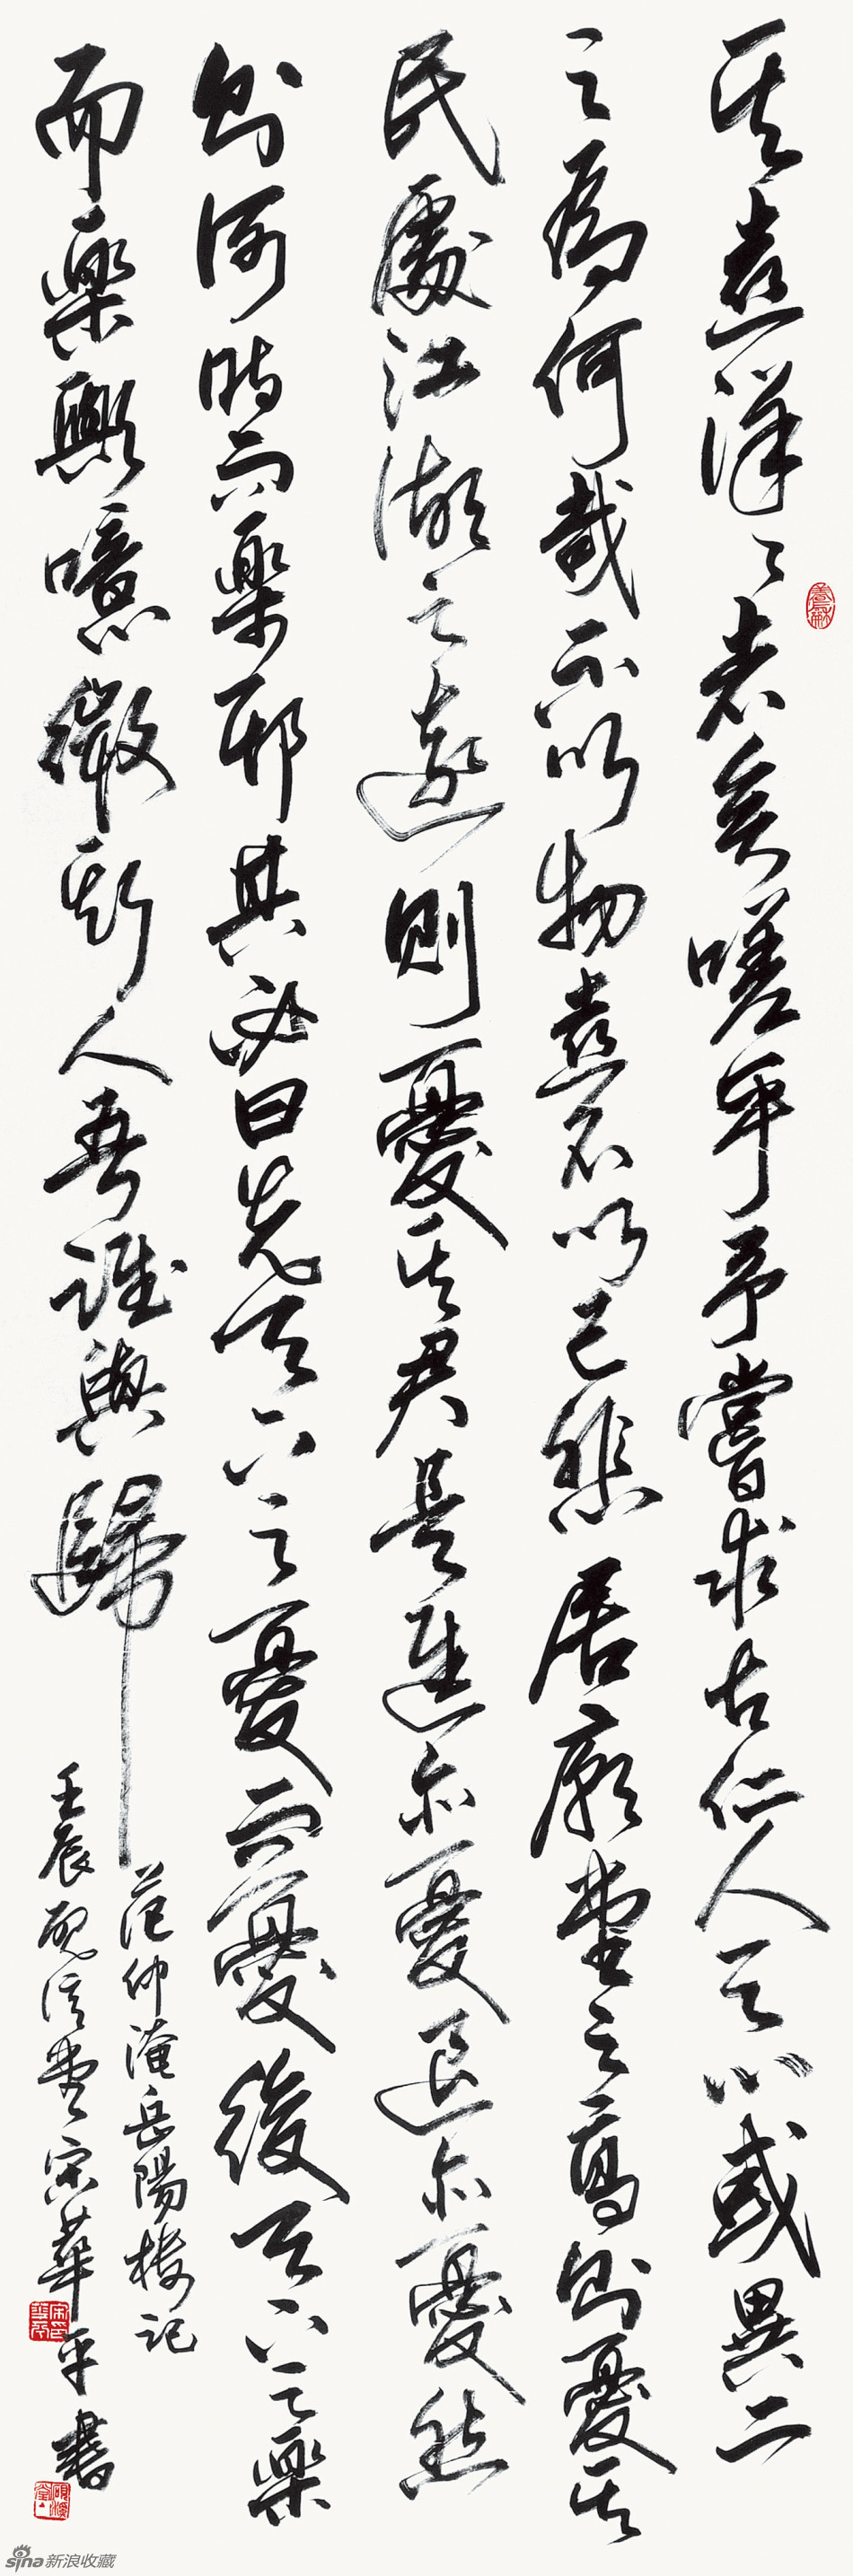 其喜洋〻者矣嗟乎予嘗求古仁人之心或異二
之為何哉不以物喜不以己悲居廟堂之高則憂其
民處江湖之遠則憂其君是進亦憂退亦憂然
則何時而樂耶其必曰先天下之憂而憂後天下之樂
而樂歟噫微斯人吾誰與歸
范仲淹岳陽樓記
壬辰硯堂宋華平書
sina新浪收藏